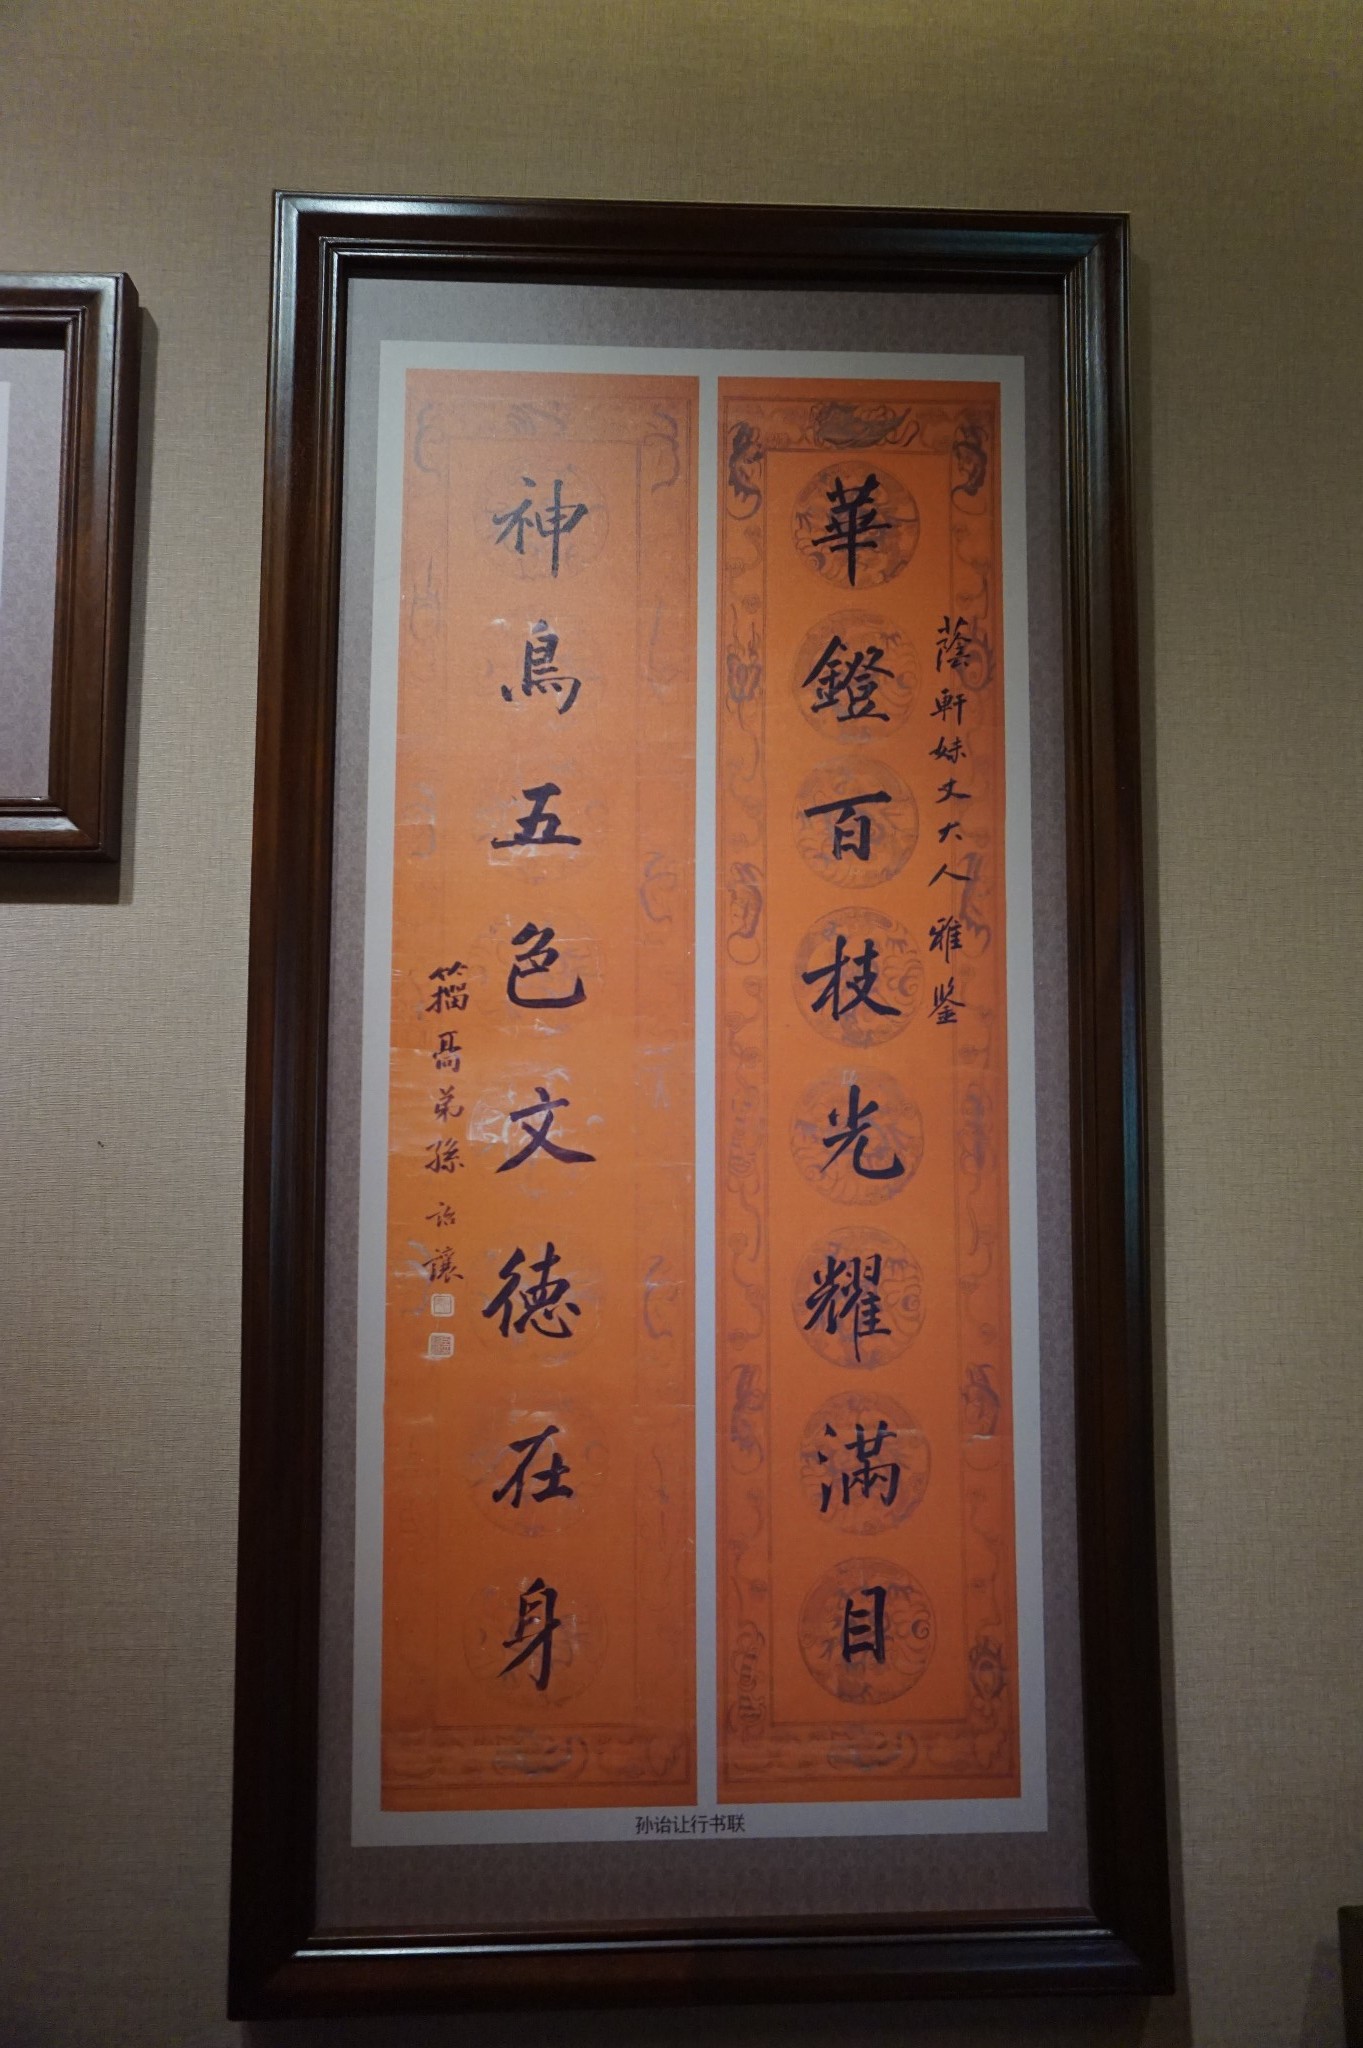 蔭軒妹丈大人雅鑒
華鐙百枝光耀滿目
神鳥五色文德在身
籀廎弟孫詒讓
孙诒让行书联